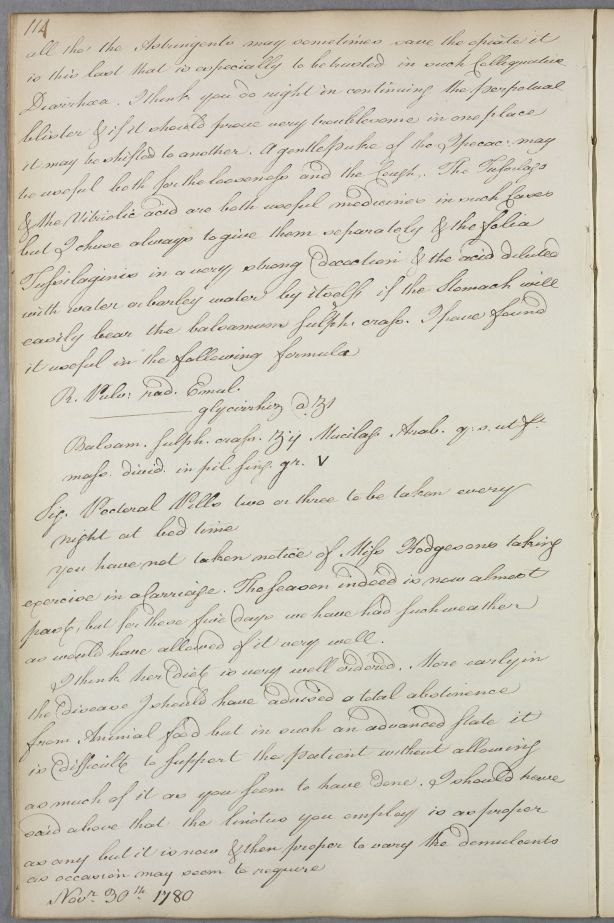 114
all tho' the Astringents may sometimes save the opiate it
is this last that is especially to be trusted in such Colliquative
Diarrhœa. I think you do right in continuing the perpetual
blister & if it should prove very troublesome in one place
it may be shifted to another. A gentle puke of the Ipecac. may
be useful both for the looseness and the Cough. The Tussilago
& the Vitriolic acid are both useful medicines in such Cases
but I chuse always to give them separately & the folia
Tussilaginis in a very strong Decoction & the acid diluted
with water or barley water by itself if the Stomach will
easily bear the balsamum Sulph. crass. I have found
it useful in the following formula
R. Pulv. rad. Enul.
glycirrhiz a ʒ1
Balsam. sulph. crass. ʒij Mucilag. Arab. q. s. ut ft.
mass. divid. in pil sing. gr. V
Sig. Pectoral Pills two or three to be taken every
night at bed time
You have not taken notice of Miss Hodgesons taking
exercise in a Carriage. The season indeed is now almost
past, but for these five days we have had such weather
as would have allowed of it very well.
I think her Diet is very well ordered. More early in
the disease I should have advised a total abstinence
from Animal food but in such an advanced State it
is difficult to support the patient without allowing
as much of it as you seem to have done. I should have
said above that the linctus you employ is as proper
as any but it is now & then proper to vary the demulcents
as occasion may seem to require
Novr. 30th 1780